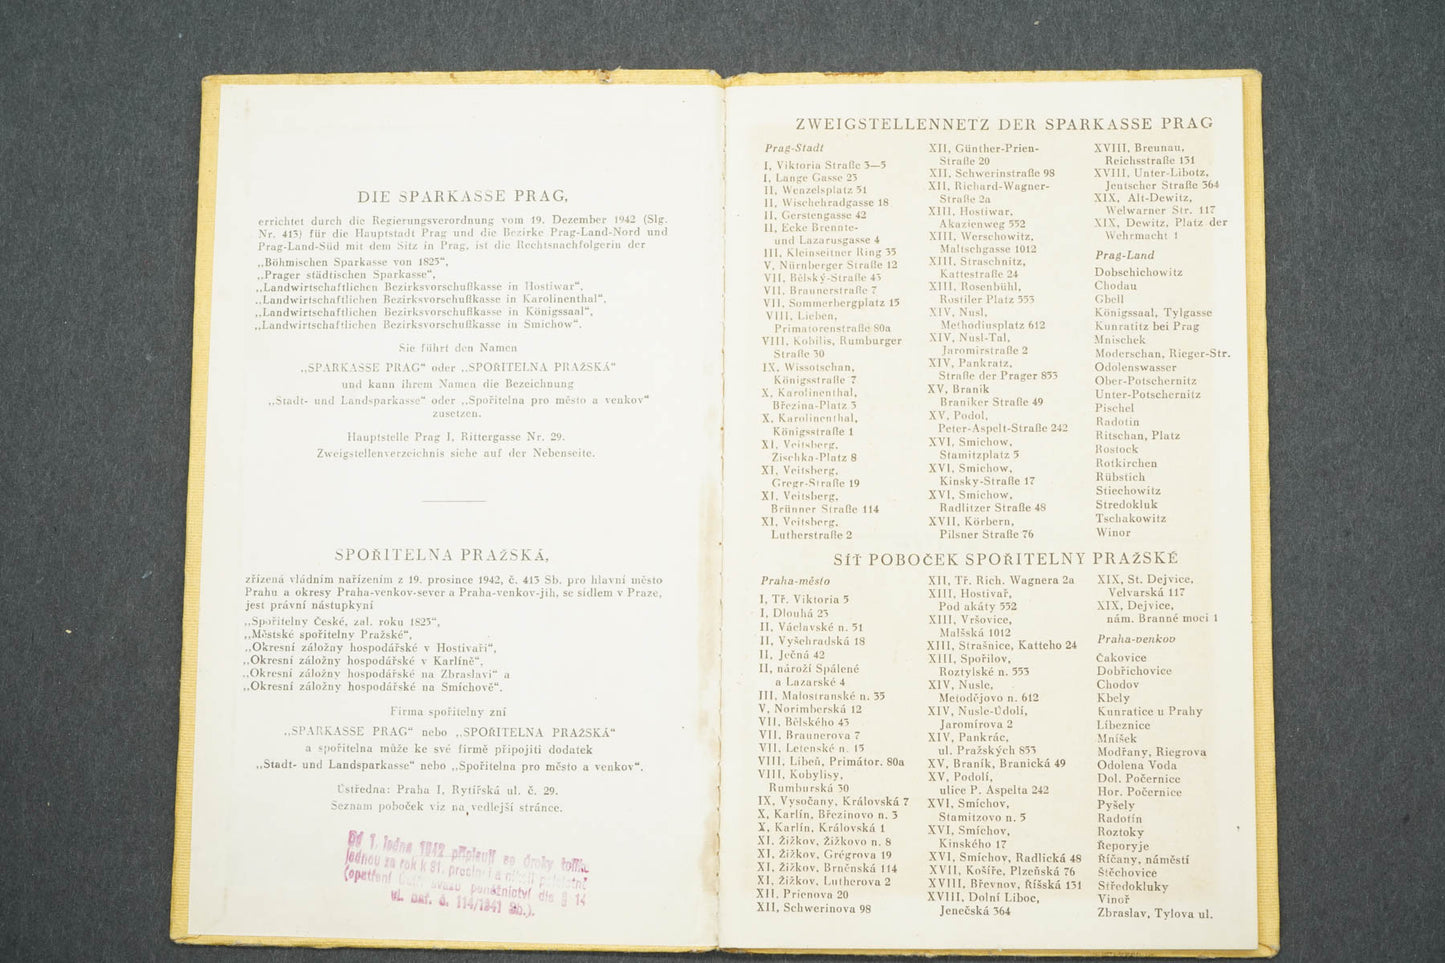 DIE SPARKASSE PRAG,
errichtet durch die Regierungsverordnung vom 19. Dezember 1942 (Slg.
Nr. 413) für die Hauptstadt Prag und die Bezirke Prag-Land-Nord und
Prag-Land-Süd mit dem Sitz in Prag, ist die Rechtsnachfolgerin der
„Böhmischen Sparkasse von 1825“,
„Prager städtischen Sparkasse“,
„Landwirtschaftlichen Bezirksvorschußkasse in Hostiwar“,
„Landwirtschaftlichen Bezirksvorschußkasse in Karolinenthal“,
„Landwirtschaftlichen Bezirksvorschußkasse in Königssaal“,
„Landwirtschaftlichen Bezirksvorschußkasse in Smichow“.
Sie führt den Namen
„SPARKASSE PRAG“ oder „SPOŘITELNA PRAŽSKÁ“
und kann ihrem Namen die Bezeichnung
„Stadt- und Landsparkasse“ oder „Spořitelna pro město a venkov“
zusetzen.
Hauptstelle Prag I, Rittergasse Nr. 29.
Zweigstellenverzeichnis siehe auf der Nebenseite.
SPOŘITELNA PRAŽSKÁ,
zřízená vládním nařízením z 19. prosince 1942, č. 413 Sb. pro hlavní město
Prahu a okresy Praha-venkov-sever a Praha-venkov-jih, se sídlem v Praze,
jest právní nástupkyní
„Spořitelny České, zal. roku 1825“,
„Městské spořitelny Pražské“,
„Okresní záložny hospodářské v Hostivaři“,
„Okresní záložny hospodářské v Karlíně“,
„Okresní záložny hospodářské na Zbraslavi“ a
„Okresní záložny hospodářské na Smíchově“.
Firma spořitelny zní
„SPARKASSE PRAG“ nebo „SPOŘITELNA PRAŽSKÁ“
a spořitelna může ke své firmě připojiti dodatek
„Stadt- und Landsparkasse“ nebo „Spořitelna pro město a venkov“.
Ústředna: Praha I, Rytířská ul. č. 29.
Seznam poboček viz na vedlejší stránce.
Od 1. ledna 1942 připisují se úroky
jednou za rok k 31. prosinci a
(opatření svazu peněžnictví dle § 14
vl. nař. č. 114/1941 Sb.).
ZWEIGSTELLENNETZ DER SPARKASSE PRAG
Prag-Stadt
I, Viktoria Straße 3—5
I, Lange Gasse 23
II, Wenzelsplatz 51
II, Wischehradgasse 18
II, Gerstengasse 42
II, Ecke Brennte-
und Lazarusgasse 4
III, Kleinseitner Ring 35
V, Nürnberger Straße 12
VII, Bělský-Straße 43
VII, Braunerstraße 7
VII, Sommerbergplatz 15
VIII, Lieben,
Primatorenstraße 80a
VIII, Kobilis, Rumburger
Straße 30
IX, Wissotschan,
Königsstraße 7
X, Karolinenthal,
Březina-Platz 3
X, Karolinenthal,
Königsstraße 1
XI, Veitsberg,
Zischka-Platz 8
XI, Veitsberg,
Gregr-Straße 19
XI, Veitsberg,
Brünner Straße 114
XI, Veitsberg,
Lutherstraße 2
XII, Günther-Prien-
Straße 20
XII, Schwerinstraße 98
XII, Richard-Wagner-
Straße 2a
XIII, Hostiwar,
Akazienweg 552
XIII, Werschowitz,
Maltschgasse 1012
XIII, Straschnitz,
Kattestraße 24
XIII, Rosenbühl,
Rostiler Platz 553
XIV, Nusl,
Methodiusplatz 612
XIV, Nusl-Tal,
Jaromirstraße 2
XIV, Pankratz,
Straße der Prager 853
XV, Branik
Braniker Straße 49
XV, Podol,
Peter-Aspelt-Straße 242
XVI, Smichow,
Stamitzplatz 5
XVI, Smichow,
Kinsky-Straße 17
XVI, Smichow,
Radlitzer Straße 48
XVII, Körbern,
Pilsner Straße 76
XVIII, Breunau,
Reichsstraße 131
XVIII, Unter-Libotz,
Jentscher Straße 364
XIX, Alt-Dewitz,
Welwarner Str. 117
XIX, Dewitz, Platz der
Wehrmacht 1
Prag-Land
Dobschichowitz
Chodau
Gbell
Königssaal, Tylgasse
Kunratitz bei Prag
Mnischek
Moderschan, Rieger-Str.
Odolenswasser
Ober-Potschernitz
Unter-Potschernitz
Pischel
Radotin
Ritschan, Platz
Rostock
Rotkirchen
Rübstich
Stiechowitz
Stredokluk
Tschakowitz
Winor
SÍŤ POBOČEK SPOŘITELNY PRAŽSKÉ
Praha-město
I, Tř. Viktoria 5
I, Dlouhá 23
II, Václavské n. 51
II, Vyšehradská 18
II, Ječná 42
II, nároží Spálené
a Lazarské 4
III, Malostranské n. 35
V, Norimberská 12
VII, Bělského 43
VII, Braunerova 7
VII, Letenské n. 15
VIII, Libeň, Primátor. 80a
VIII, Kobylisy,
Rumburská 30
IX, Vysočany, Královská 7
X, Karlín, Březinovo n. 3
X, Karlín, Královská 1
XI, Žižkov, Žižkovo n. 8
XI, Žižkov, Grégrova 19
XI, Žižkov, Brněnská 114
XI, Žižkov, Lutherova 2
XII, Prienova 20
XII, Schwerinova 98
XII, Tř. Rich. Wagnera 2a
XIII, Hostivař,
Pod akáty 552
XIII, Vršovice,
Malšská 1012
XIII, Strašnice, Katteho 24
XIII, Spořilov,
Roztylské n. 553
XIV, Nusle,
Metodějovo n. 612
XIV, Nusle-Údolí,
Jaromírova 2
XIV, Pankrác,
ul. Pražských 853
XV, Braník, Branická 49
XV, Podolí,
ulice P. Aspelta 242
XVI, Smíchov,
Stamitzovo n. 5
XVI, Smíchov,
Kinského 17
XVI, Smíchov, Radlická 48
XVII, Košíře, Plzeňská 76
XVIII, Břevnov, Říšská 131
XVIII, Dolní Liboc,
Jenečská 364
XIX, St. Dejvice,
Velvarská 117
XIX, Dejvice,
nám. Branné moci 1
Praha-venkov
Čakovice
Dobřichovice
Chodov
Kbely
Kunratice u Prahy
Líbeznice
Mníšek
Modřany, Riegrova
Odolena Voda
Dol. Počernice
Hor. Počernice
Pyšely
Radotín
Roztoky
Řeporyje
Říčany, náměstí
Štěchovice
Středokluky
Vinoř
Zbraslav, Tylova ul.